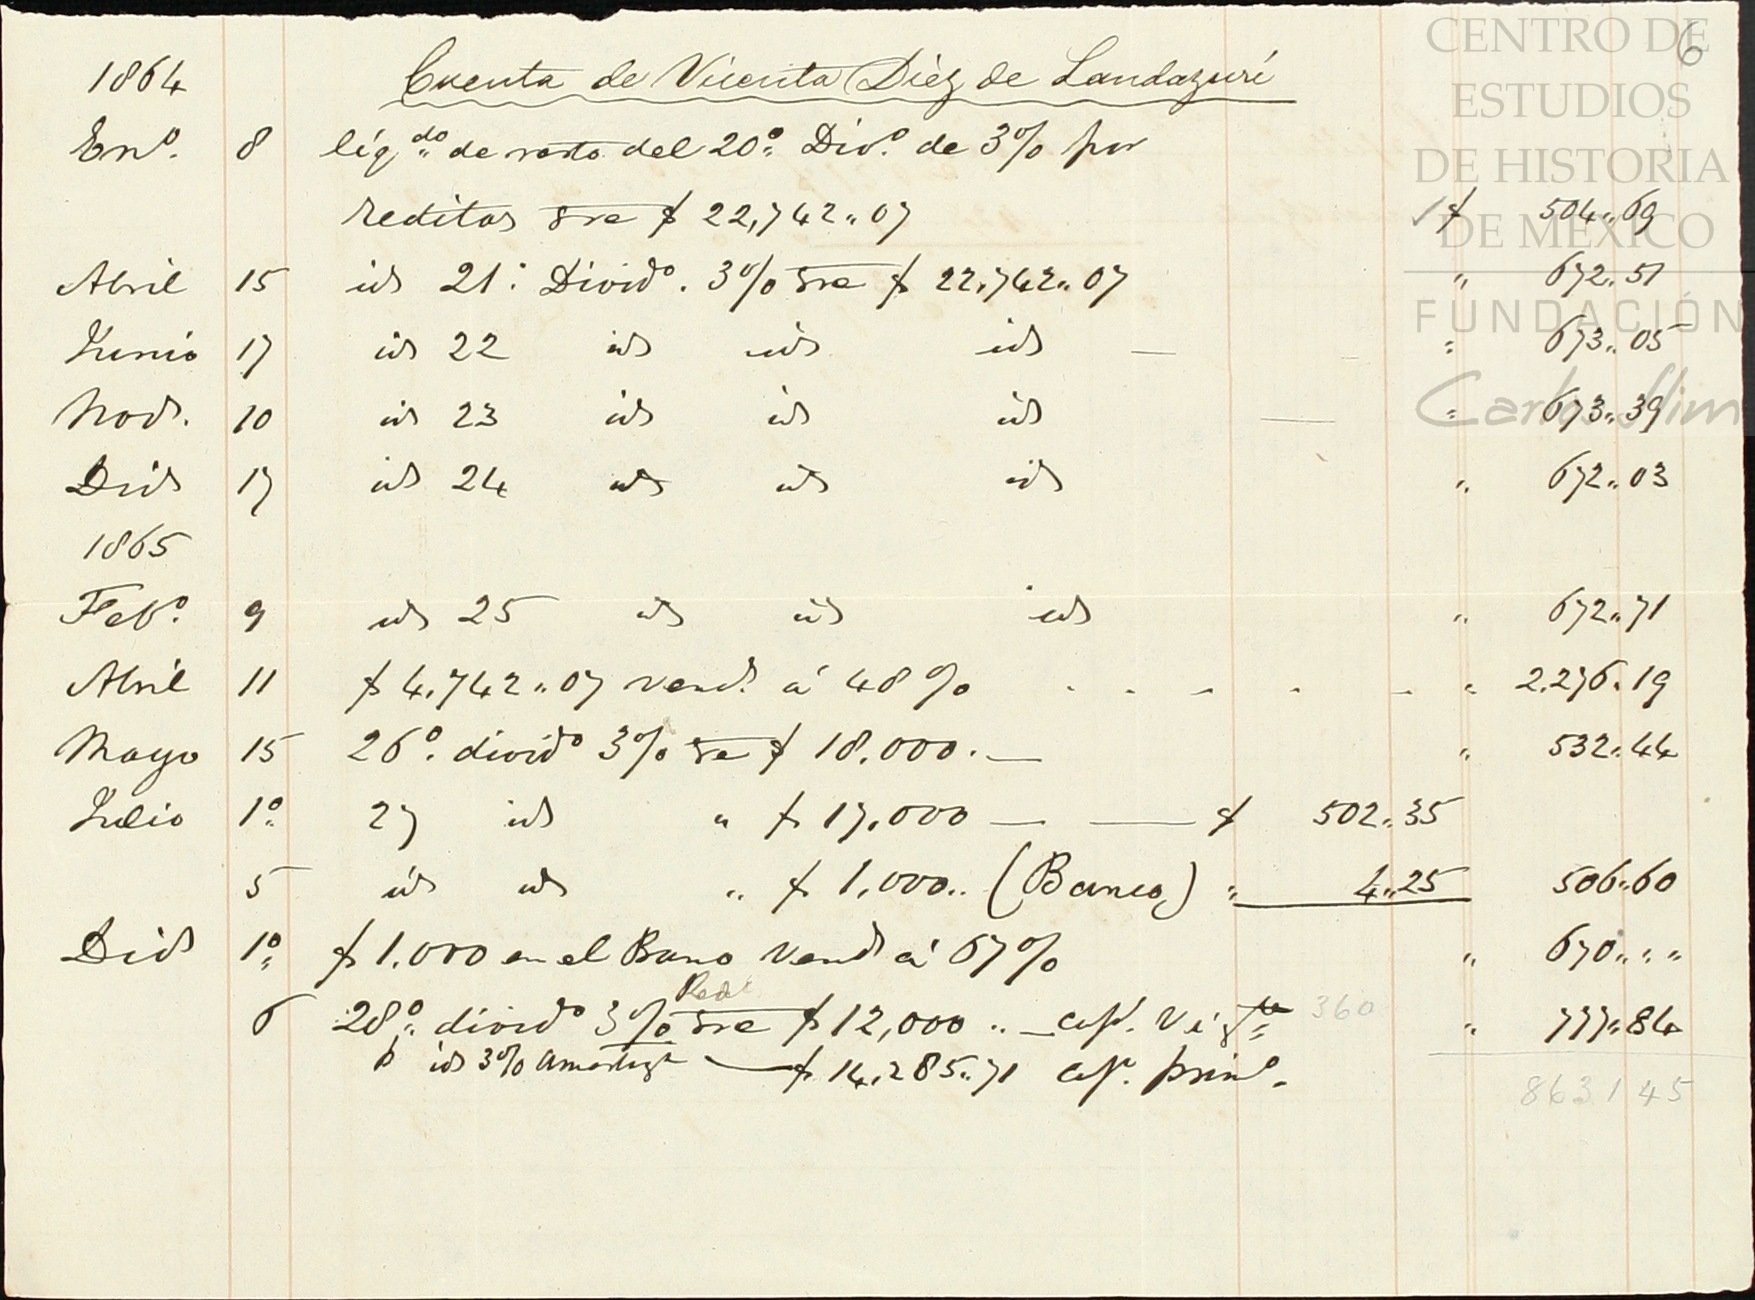 CENTRO DE
ESTUDIOS
DE HISTORIA
DE MÉXICO
FUNDACIÓN
Carlos Slim
6
1864 Cuenta de Vicenta Diéz de Landazuri
Enº. 8 liq.do de resto del 20º Divº. de 3% por
reditos sre $ 22,742.,07 $ 504.,69
Abril 15 id 21º Dividº. 3% sre $ 22,742.,07 " 672.,51
Junio 17 id 22 id id id — " 673.,05
Nov. 10 id 23 id id id — " 673.,39
Dic 17 id 24 id id id " 672.,03
1865
Febº. 9 id 25 id id id " 672.,71
Abril 11 $ 4,742.,07 vend. á 48% " 2,276.,19
Mayo 15 26º. dividº 3% sre $ 18,000.— " 532.,44
Julio 1º 27 id " $ 17,000 — — $ 502.,35
5 id id " $ 1,000.. (Banco) " 4.,25 506.,60
Dic 1º $ 1,000 en el Banco vend á 67% " 670.,"
Red
6 28º. dividº 3% sre $ 12,000 .. — cap. Vigte 360 " 777.,84
p id 3% Amortizn — $ 14,285.,71 cap. primº.
8631 45